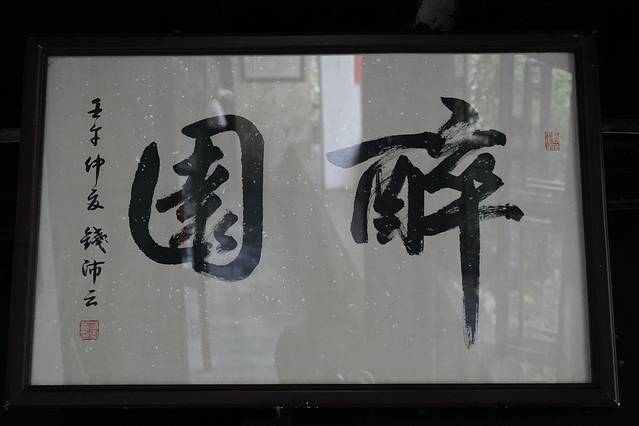 醉園
壬午仲夏錢沛云